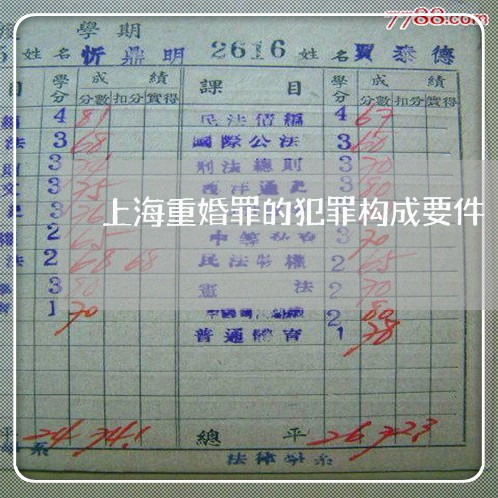 7788.com
學期
姓名 忻鼎明 2616 姓名 賈泰德
目 學分 成績 課目 學分 成績
分數 扣分 實得 分數 扣分 實得
4 81 民法債編 4 67
法 3 68 國際公法 3 60
3 刑法總則 3 70
3 75 西洋通史 3 80
上海重婚罪的犯罪构成要件
2 65 3 70
法 2 68 68 民法物權 2 65
3 80 憲法 2 70
1 70 2 80
普通體育 1 78
平 24 74.1 總平 26 72.3
系 法律學系